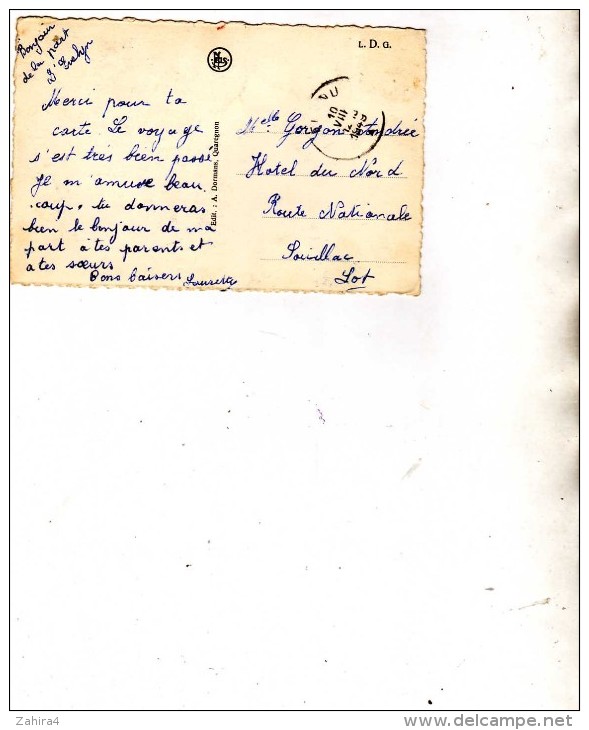 Bonjour
de la part
d'Evelyn
L. D. G.
Merci pour ta
carte. Le voyage
s'est très bien passé
Je m'amuse beau
.coup. tu donneras
bien le bonjour de ma
part à tes parents et
a tes sœurs
Bons baisers
Edit. : A. Dormans, Quaregnon
10
VIII
Melle Gorgon Andrée
Hotel du Nord
Route Nationale
Souillac
Lot
Zahira4
www.delcampe.net